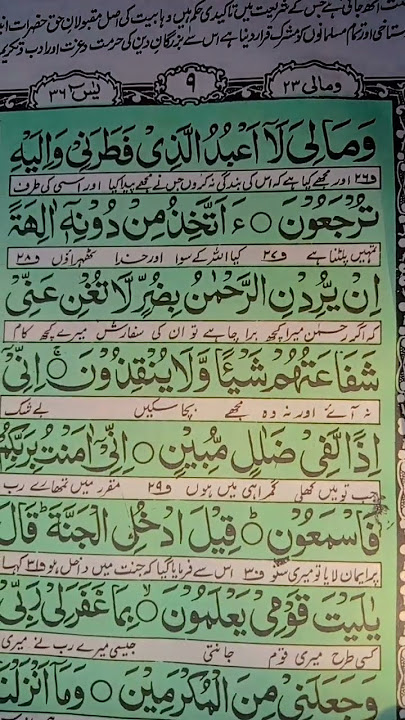 ست اٹھ جاتی ہے جس کے شریعت میں تاکیدی حکم ہیں وہابیت کی اصل مقبولان حق حضرات
اور تمام مسلمانوں کو مشرک قرار دینا ہے اس سے بزرگان دین کی حرمت و عزت اور ادب و تکریم
ومالی ۲۳ ۹ یٰسٓ ۳۶
وَمَا لِیَ لَاۤ اَعْبُدُ الَّذِیْ فَطَرَنِیْ وَاِلَیْهِ
۲۶ اور مجھے کیا ہے کہ اس کی بندگی نہ کروں جس نے مجھے پیدا کیا اور اسی کی طرف
تُرْجَعُوْنَ ۝ ءَاَتَّخِذُ مِنْ دُوْنِهٖۤ اٰلِهَةً
تمہیں پلٹنا ہے ۲۷ کیا اللہ کے سوا اور خدا ٹھہراؤں ۲۸
اِنْ یُّرِدْنِ الرَّحْمٰنُ بِضُرٍّ لَّا تُغْنِ عَنِّیْ
کہ اگر رحمٰن میرا کچھ برا چاہے تو ان کی سفارش میرے کچھ کام
شَفَاعَتُهُمْ شَیْـًٔا وَّلَا یُنْقِذُوْنِ ۝ اِنِّیْۤ
نہ آئے اور نہ وہ مجھے بچا سکیں بے شک
اِذًا لَّفِیْ ضَلٰلٍ مُّبِیْنٍ ۝ اِنِّیْۤ اٰمَنْتُ بِرَبِّكُمْ
جب تو میں کھلی گمراہی میں ہوں ۲۹ مقرر میں تمہارے رب
فَاسْمَعُوْنِ ۝ قِیْلَ ادْخُلِ الْجَنَّةَ ؕ قَالَ
پر ایمان لایا تو میری سنو ۳۰ اس سے فرمایا گیا کہ جنت میں داخل ہو ۳۱ کہا
یٰلَیْتَ قَوْمِیْ یَعْلَمُوْنَ ۝ بِمَا غَفَرَ لِیْ رَبِّیْ
کسی طرح میری قوم جانتی جیسی میرے رب نے میری
وَجَعَلَنِیْ مِنَ الْمُكْرَمِیْنَ ۝ وَمَاۤ اَنْزَلْنَا